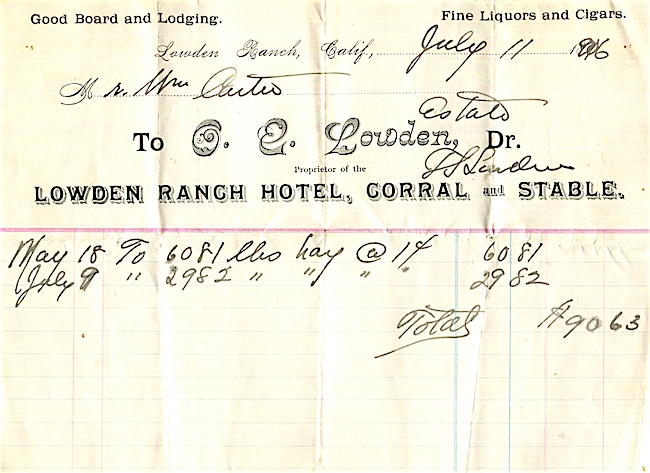 Good Board and Lodging. Fine Liquors and Cigars.
Lowden Ranch, Calif., July 11
Mr. Wm
Estate
To O. E. Lowden, Dr.
Proprietor of the
LOWDEN RANCH HOTEL, CORRAL and STABLE.
May 18 To 6081 lbs hay @ 1¢ 60 81
July 9 " 2982 " " " " 29 82
Total $90 63